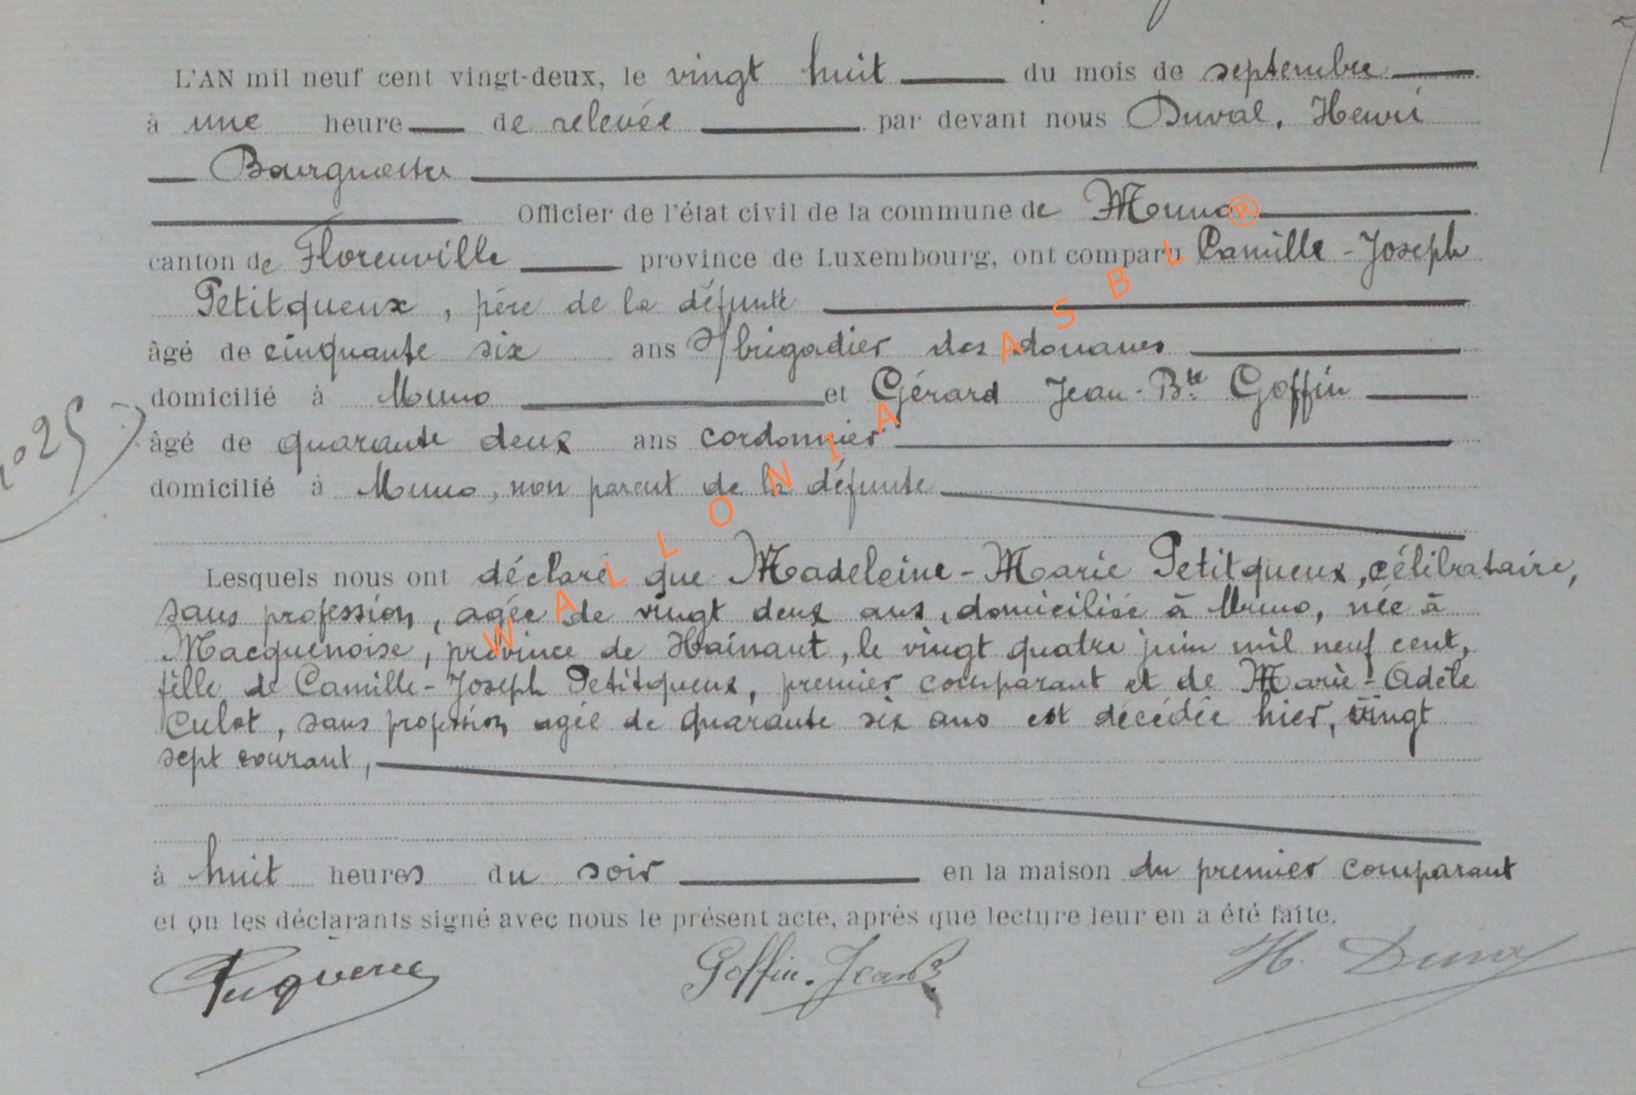 L'AN mil neuf cent vingt-deux, le vingt huit du mois de septembre
à une heure de relevée par devant nous Duval, Henri
Bourgmestre
Officier de l'état civil de la commune de Muno
canton de Florenville province de Luxembourg, ont comparu Camille-Joseph
Petitqueux, père de la défunte
âgé de cinquante six ans S/brigadier des douanes
domicilié à Muno et Gérard Jean-Bte Goffin
âgé de quarante deux ans cordonnier
domicilié à Muno, non parent de la défunte
Lesquels nous ont déclaré que Madeleine-Marie Petitqueux, célibataire,
sans profession, agée de vingt deux ans, domiciliée à Muno, née à
Macquenoise, province de Hainaut, le vingt quatre juin mil neuf cent,
fille de Camille-Joseph Petitqueux, premier comparant et de Marie-Adèle
Culot, sans profession agée de quarante six ans est décédée hier, vingt
sept courant,
à huit heures du soir en la maison du premier comparant
et on les déclarants signé avec nous le présent acte, après que lecture leur en a été faite.
Goffin. Jean B H. Duval
No 25
WALLONIA ASBL ®